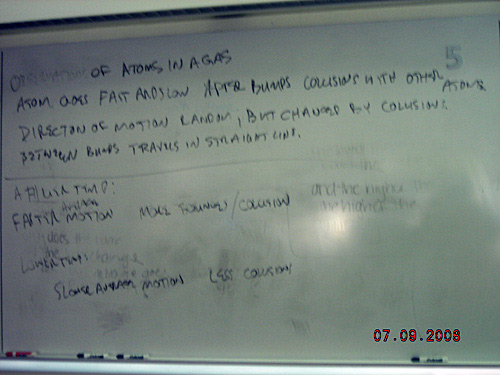 OF ATOMS IN A GAS
5
ATOM GOES FAST AND SLOW AFTER BUMPS COLLISIONS WITH OTHER ATOMS
DIRECTON OF MOTION RANDOM, BUT CHANGED BY COLLISIONS
BETWEEN BUMPS TRAVELS IN STRAIGHT LINE.
TEMP:
FASTER AVERAGE MOTION MORE /COLLISION
and the higher
LOWER TEMP:
SLOWER AVERAGE MOTION LESS COLLISIONS
07.09.2008